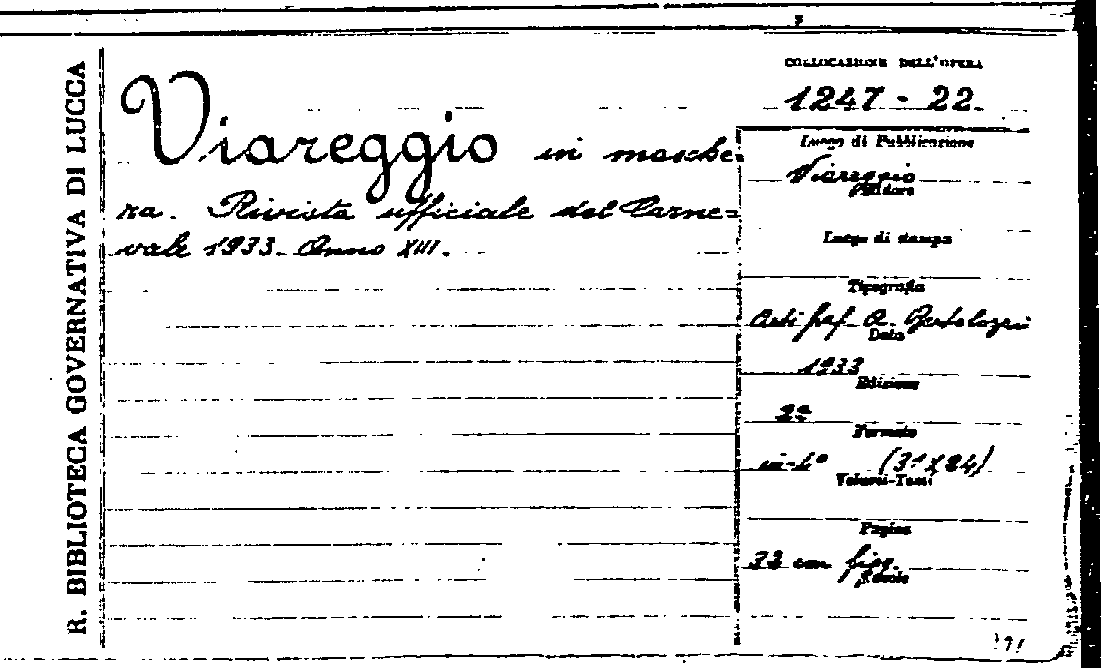 R. BIBLIOTECA GOVERNATIVA DI LUCCA
Viareggio in masche=
ra. Rivista ufficiale del Carne=
vale 1933. Anno XIII.
COLLOCAZIONE DELL'OPERA
1247 - 22.
Luogo di Pubblicazione
Viareggio
Editore
Luogo di stampa
Tipografia
Arti A. Bertolozzi
Data
1933
Edizione
2ª
Formato
in-4° (31x24)
Volumi-Tomi
Pagine
32 con fig.
Tavole